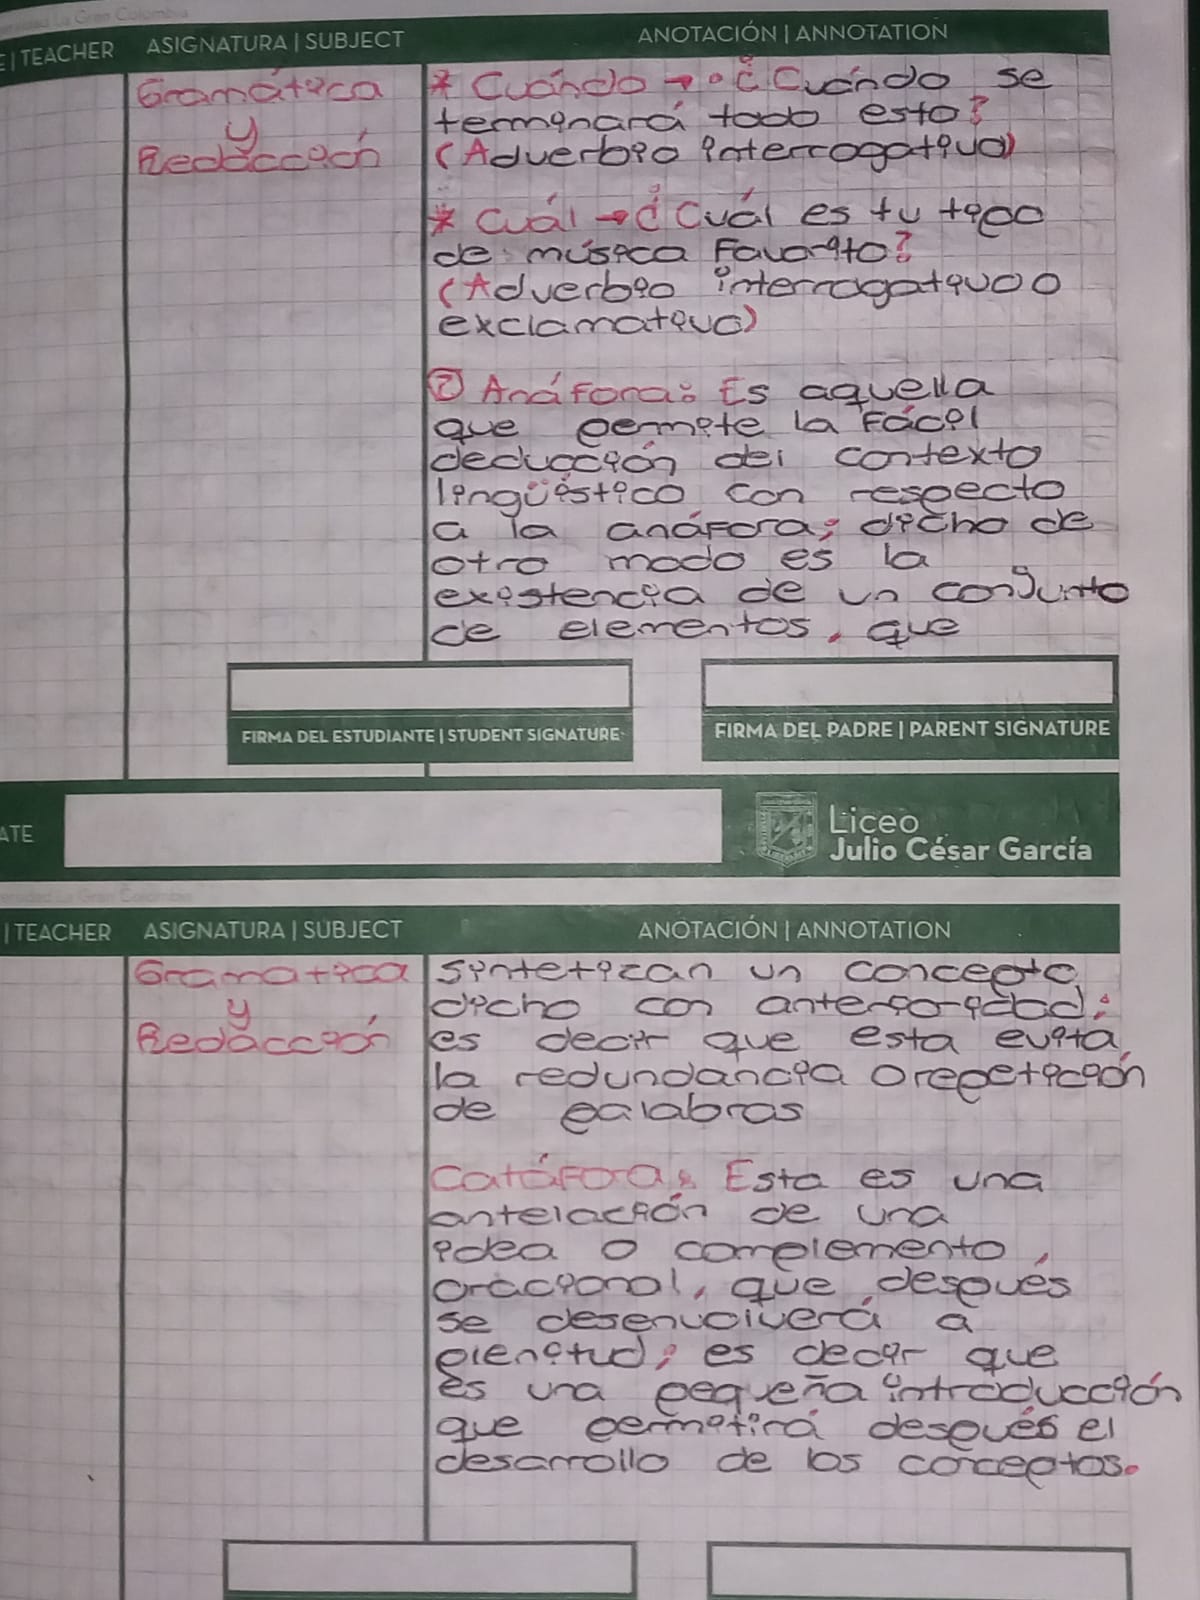 Universidad La Gran Colombia
E | TEACHER ASIGNATURA | SUBJECT ANOTACIÓN | ANNOTATION
Gramática
y
Redacción
* Cuándo → ¿Cuándo se
terminará todo esto?
(Adverbio interrogativo)
* Cuál → ¿Cuál es tu tipo
de música favorito?
(Adverbio interrogativo o
exclamativo)
② Anáfora: Es aquella
que permite la fácil
deducción del contexto
lingüístico con respecto
a la anáfora; dicho de
otro modo es la
existencia de un conjunto
de elementos, que
FIRMA DEL ESTUDIANTE | STUDENT SIGNATURE
FIRMA DEL PADRE | PARENT SIGNATURE
ATE
Liceo
Julio César García
| TEACHER ASIGNATURA | SUBJECT ANOTACIÓN | ANNOTATION
Gramatica
y
Redacción
sintetizan un concepto
dicho con anterioridad;
es decir que esta evita
la redundancia o repetición
de palabras
Catáfora: Esta es una
antelación de una
idea o complemento
oracional, que después
se desenvolverá a
plenitud; es decir que
es una pequeña introducción
que permitirá después el
desarrollo de los conceptos.